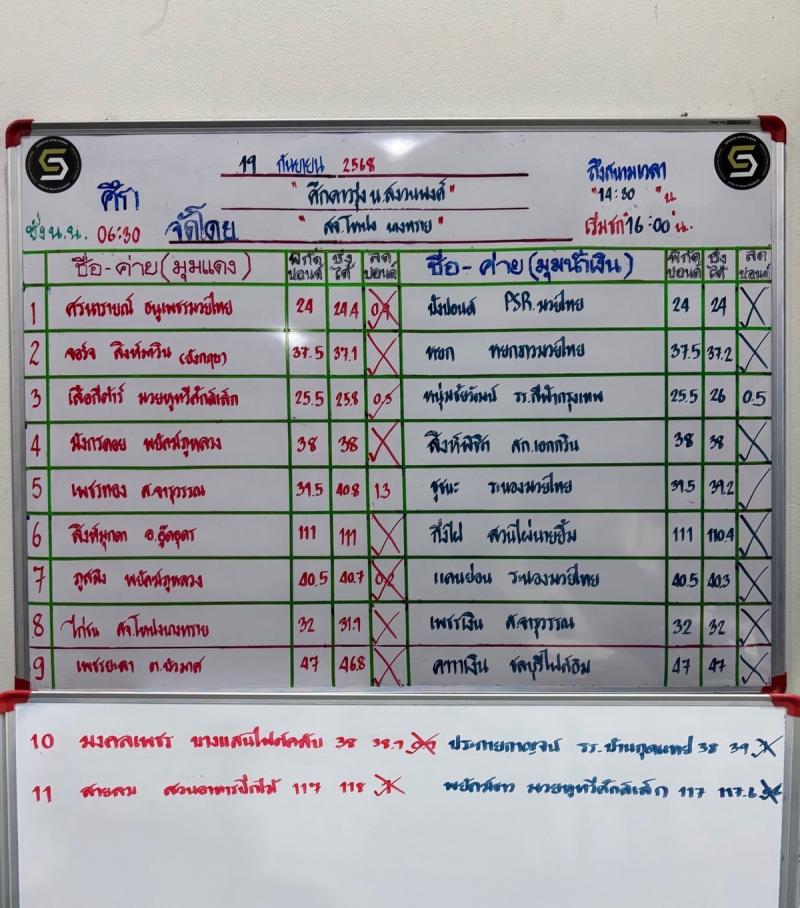 19 กันยายน 2568
ศึก
"ศึกดาวรุ่ง น.สงวนพงศ์"
ถึงสนามเวลา
"14:30 "น
ชั่ง น.น. 06:30 จัดโดย
สจ.โหน่ง นางทราย
เริ่มชก "16:00 "น.
ชื่อ-ค่าย(มุมแดง) พิกัดปอนด์ ชั่งได้ ลดปอนด์ ชื่อ-ค่าย(มุมน้ำเงิน) พิกัดปอนด์ ชั่งได้ ลดปอนด์
1 ศรนารายณ์ ธนูเพชรมวยไทย 24 24.4 0.4 ปังปอนด์ PSR.มวยไทย 24 24
2 จอร์จ สิงห์นาวิน (อังกฤษ) 37.5 37.1 หยก หยกขาวมวยไทย 37.5 37.2
3 มวยหูทวีศักดิ์เล็ก 25.5 25.8 0.3 หนุ่มชัยวัฒน์ รร.สีฟ้ากรุงเทพ 25.5 26 0.5
4 มังกรดอย พยัคฆ์ภูหลวง 38 38 สิงห์พิชิต ศก.เอกกวิน 38 38
5 เพชรทอง ส.จารุวรรณ 39.5 40.8 1.3 ชูชนะ ระนองมวยไทย 39.5 39.2
6 สิงห์มุกดา อ.อู๊ดอุดร 111 111 กิ่งไผ่ สวนไผ่นายอิ้ม 111 110.4
7 ภูสิง พยัคฆ์ภูหลวง 40.5 40.7 0.2 แคนย่อน ระนองมวยไทย 40.5 40.3
8 ไก่ชน สจ.โหน่งนางทราย 32 31.9 เพชรเงิน ส.จารุวรรณ 32 32
9 เพชรยะลา ต.บัวมาศ 47 46.8 ชลบุรีไฟต์ยิม 47 47
10 มงคลเพชร บางแสนไฟต์คลับ 38 38.7 0.7 ประกายกาญจน์ รร.บ้านกุดแห่ 38 39 1
11 สายลม สวนอาหารปีกไม้ 117 118 1 พยัคฆ์ขาว มวยหูทวีศักดิ์เล็ก 117 117.6